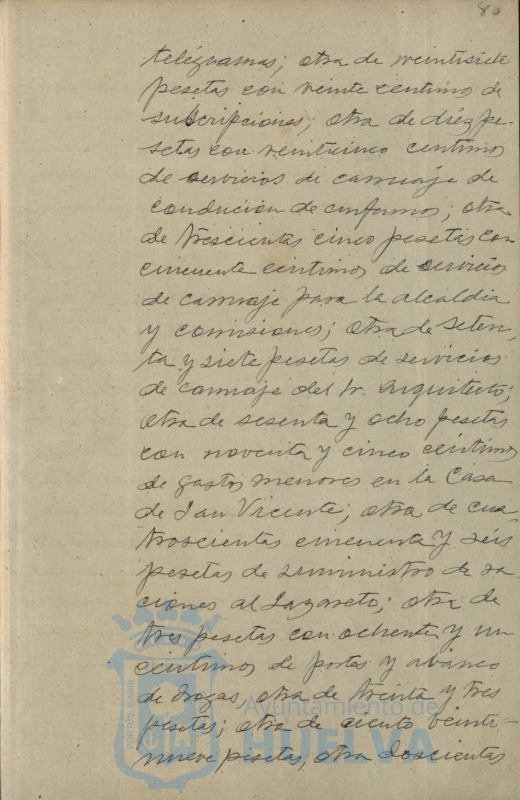 80
telégramas; otra de veintisiete
pesetas con veinte centimos de
subscripciones; otra de diéz pe-
setas con veinticinco centimos
de servicios de carruaje de
conducion de enfermos; otra
de trescientas cinco pesetas con
cincuenta centimos de servicios
de carruaje para la alcaldia
y comisiones; otra de seten-
ta y siete pesetas de servicios
de carruaje del Sr. Arquitecto;
otra de sesenta y ocho pesetas
con noventa y cinco centimos
de gastos menores en la Casa
de San Vicente; otra de cua-
troscientas cincuenta y séis
pesetas de suministro de ra
ciones al Lazareto; otra de
tres pesetas con ochenta y un
centimos de portes y
de drogas, otra de treinta y tres
pesetas; otra de ciento veinti-
nueve pesetas, otra doscientas
PORTUS MARIS
Ayuntamiento de
HUELVA